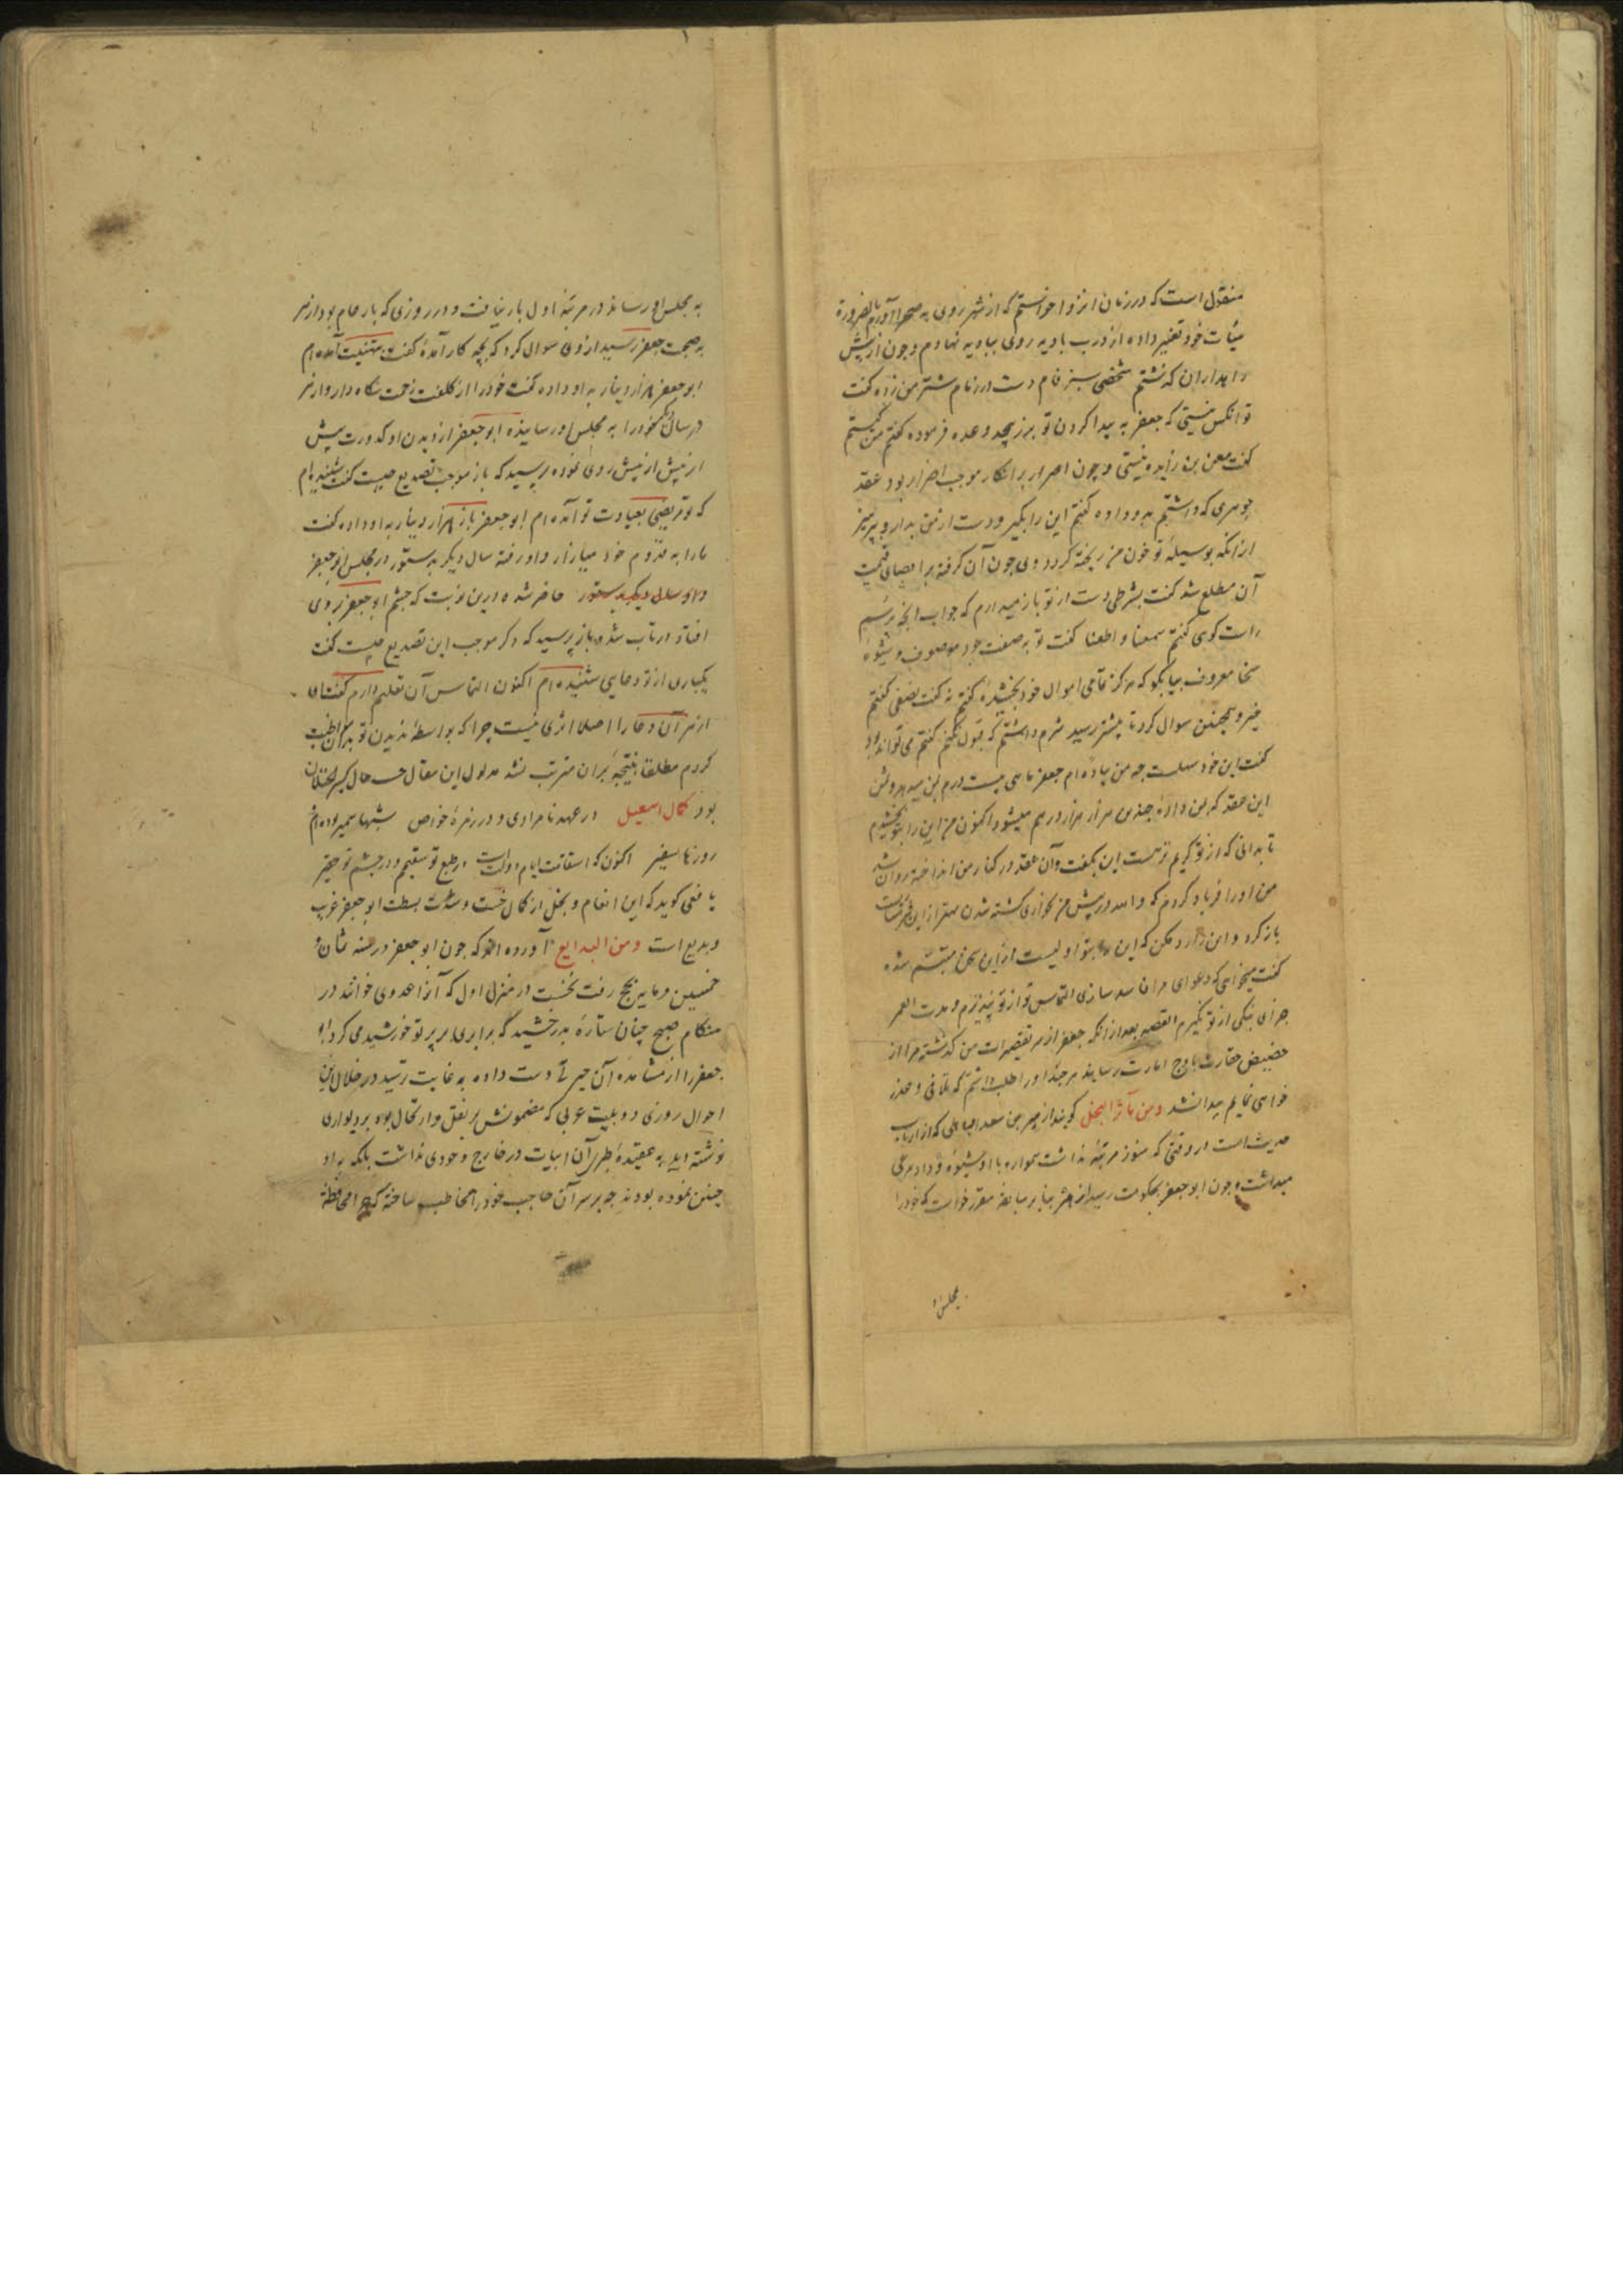 منقول است که در زمان انزوا خواستم که از شهر روی به صحرا آورم بالضرورة
هیأت خود تغییر داده از درب بادیه روی ببادیه نهادم و چون از پیش
راهداران گذشتم شخصی سبز فام دست در زمام شتر من زده گفت
تو آنکس نیستی که جعفر به پیدا کردن تو برز پیچد وعده فرموده گفتم من کیستم
گفت معن بن زایده نیستی و چون اصرار بر انکار موجب اضرار بود عقد
جوهری که داشتم بدو داده گفتم این را بگیر و دست از من بدار و بپرهیز
از آنکه بوسیلهٔ تو خون من ریخته گردد وی چون آن گرفته بر اقصای قیمت
آن مطلع شد گفت بشرطی دست از تو باز میدارم که جواب آنچه پرسم
راست گوی گفتم سمعنا و اطعنا گفت تو به صفت جود موصوف و بشیوهٔ
سخا معروف بیا بگو که هرگز تمامی اموال خود بخشیدهٔ گفتم نه گفت نصفی گفتم
خیر و همچنین سوال کرد تا بعشر رسید شرم داشتم که قبول نکنم گفتم می تواند بود
گفت این خود سهلست چه من پیاده ام جعفر ماهی بیست درم بمن میدهد و ثمن
این عقد که بمن دادهٔ چندین هزار هزار درهم میشود اکنون من این را بتو بخشیدم
تا بدانی که از تو کریم تر هست این بگفت و آن عقد در کنار من انداخته روان شد
من او را فریاد کردم که والله در پیش من بخواری کشته شدن بهتر از این
باز کرد و این را رد مکن که این بتو اولیست از این سخن متبسم شده
گفت میخواهی که دعوای مرا فاسد سازی التماس تو از تو نپذیرم و مدت العمر
جزای نیکی از تو نگیرم القصه بعد از آنکه جعفر از سر تقصیرات من گذشته مرا از
حضیض حقارت باوج امارت رسانید هر چند او را طلب داشتم که تلافی و عذر
خواهی نمایم پیدا نشد ومن مآثر البخل گویند از هر بن سعد الباهلی که از ارباب
حدیث است در وقتی که هنوز مرتبهٔ نداشت همواره با او شیوهٔ وداد مرعی
میداشت و چون ابو جعفر بحکومت رسید از هر بنابر سابقه معرفت خواست که خود را
مجلس او
به مجلس او رساند در مرتبهٔ اول بار نیافت و در روزی که بار عام بود از هر
به صحبت جعفر رسید از وی سوال کرد که بچه کار آمدهٔ گفت به تهنیت آمده ام
ابو جعفر هزار دینار به او داده گفت خود را از کلفت زحمت نگاه دار و از هر
در سال دیگر خود را به مجلس او رسانیده ابو جعفر از دیدن او کدورت پیش
از پیش از پیش روی نموده پرسید که باز موجب تصدیع چیست گفت شنیده ام
که تو مریضی بعیادت تو آمده ام ابو جعفر باز هزار دینار به او داده گفت
ما را به قدوم خود میازار و او رفته سال دیگر بدستور در مجلس ابو جعفر
و او سال دیگر بدستور حاضر شده در این نوبت که چشم ابو جعفر بر وی
افتاد در تاب شد و باز پرسید که دگر موجب این تصدیع چیست گفت
یکباری از تو دعایی شنیده ام اکنون التماس آن تعلیم دارم گفت ای
از هر آن دعا را اصلا اثری نیست چرا که بواسطهٔ ندیدن تو
کردم مطلقا نتیجه بر آن مترتب نشد مدلول این مقال حسب حال
بود کمال اسمعیل در عهد نامرادی و در زمرهٔ خواص شبها سمیر بوده ام
روزها سفیر اکنون که استقامت ایام دولتست در طبع تو سقیم و در چشم تو حقیر
یافعی گوید که این انعام و بخل از کمال خست و شدت بسطت ابو جعفر غریب
و بدیع است ومن البدایع آورده اند که چون ابو جعفر در سنه ثمان و
خمسین و مایه بحج رفت نخست در منزل اول که آن را عدوی خوانند در
هنگام صبح چنان ستارهٔ بدرخشید که برابری بر پرتو خورشید می کرد ابو
جعفر را از مشاهده آن حیرتی دست داده به غایت رتسید در خلال این
احوال روزی دو بیت عربی که مضمونش بر نقل و ارتحال بود بر دیواری
نوشته دید به عقیدهٔ طبری آن ابیات در خارج وجودی نداشت بلکه به او
چنین نموده بودند چه بر سر آن حاجب خود را مخاطب ساخته که محافظهٔ